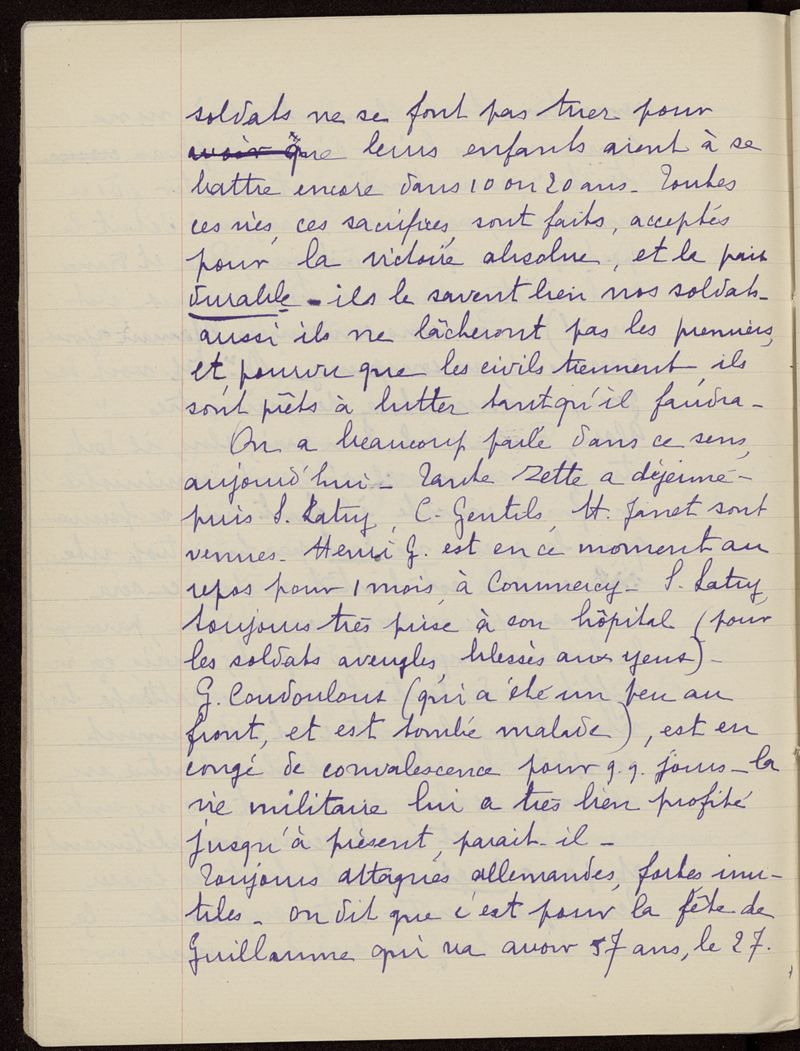 soldats ne se font pas tuer pour
que leurs enfants aient à se
battre encore dans 10 ou 20 ans - Toutes
ces vies, ces sacrifices, sont faits, acceptés
pour la victoire absolue, et la paix
durable - ils le savent bien nos soldats -
aussi ils ne lâcheront pas les premiers,
et, pourvu que les civils tiennent, ils
sont prêts à lutter tant qu'il faudra -
On a beaucoup parlé dans ce sens,
aujourd'hui - Tante Zette a déjeuné -
puis S. Latry, C. Gentils, H. Janet sont
venues - Henri G. est en ce moment au
repos pour 1 mois, à Commercy - S. Latry,
toujours très prise à son hôpital (pour
les soldats aveugles, blessés aux yeux) -
G. Coudoulous (qui a été un peu au
front, et est tombé malade), est en
congé de convalescence pour q.q. jours - la
vie militaire lui a très bien profité
jusqu'à présent, parait-il -
Toujours attaques allemandes, fortes, inu-
tiles - On dit que c'est pour la fête de
Guillaume qui va avoir 57 ans, le 27.